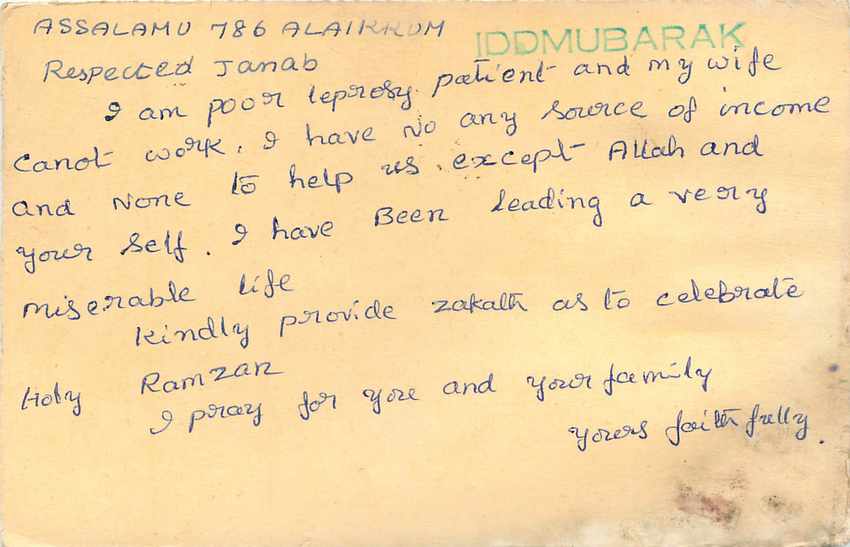 ASSALAMU 786 ALAIKKUM
IDDMUBARAK
Respected Janab
I am poor leprosy patient and my wife
canot work. I have no any source of income
and None to help us. except Allah and
your self. I have Been leading a very
miserable life
Kindly provide zakath as to celebrate
Holy Ramzan
I pray for you and your family
yours faithfully.